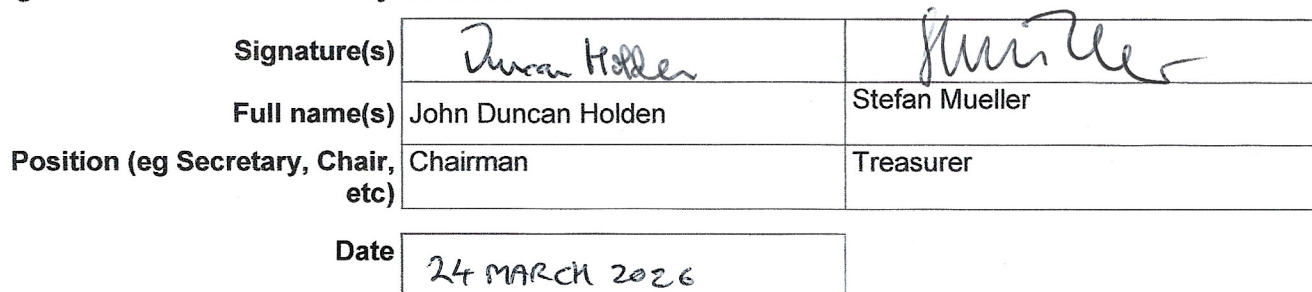 Signature(s) Duncan Holden SMueller
Full name(s) John Duncan Holden Stefan Mueller
Position (eg Secretary, Chair, Chairman Treasurer
etc)
Date 24 MARCH 2026